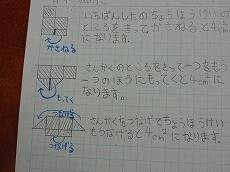 いちばんしたのちょうほうけいの
ところをきって、かさねると4cm²
になります。
かさねる
さんかくのところをきって一つをもう
一つのほうにもってくと4cm²に
なります。
もってく
つなげる
さんかくをつなげてちょうほうけい
もつなげると4cm²になります。
つなげる